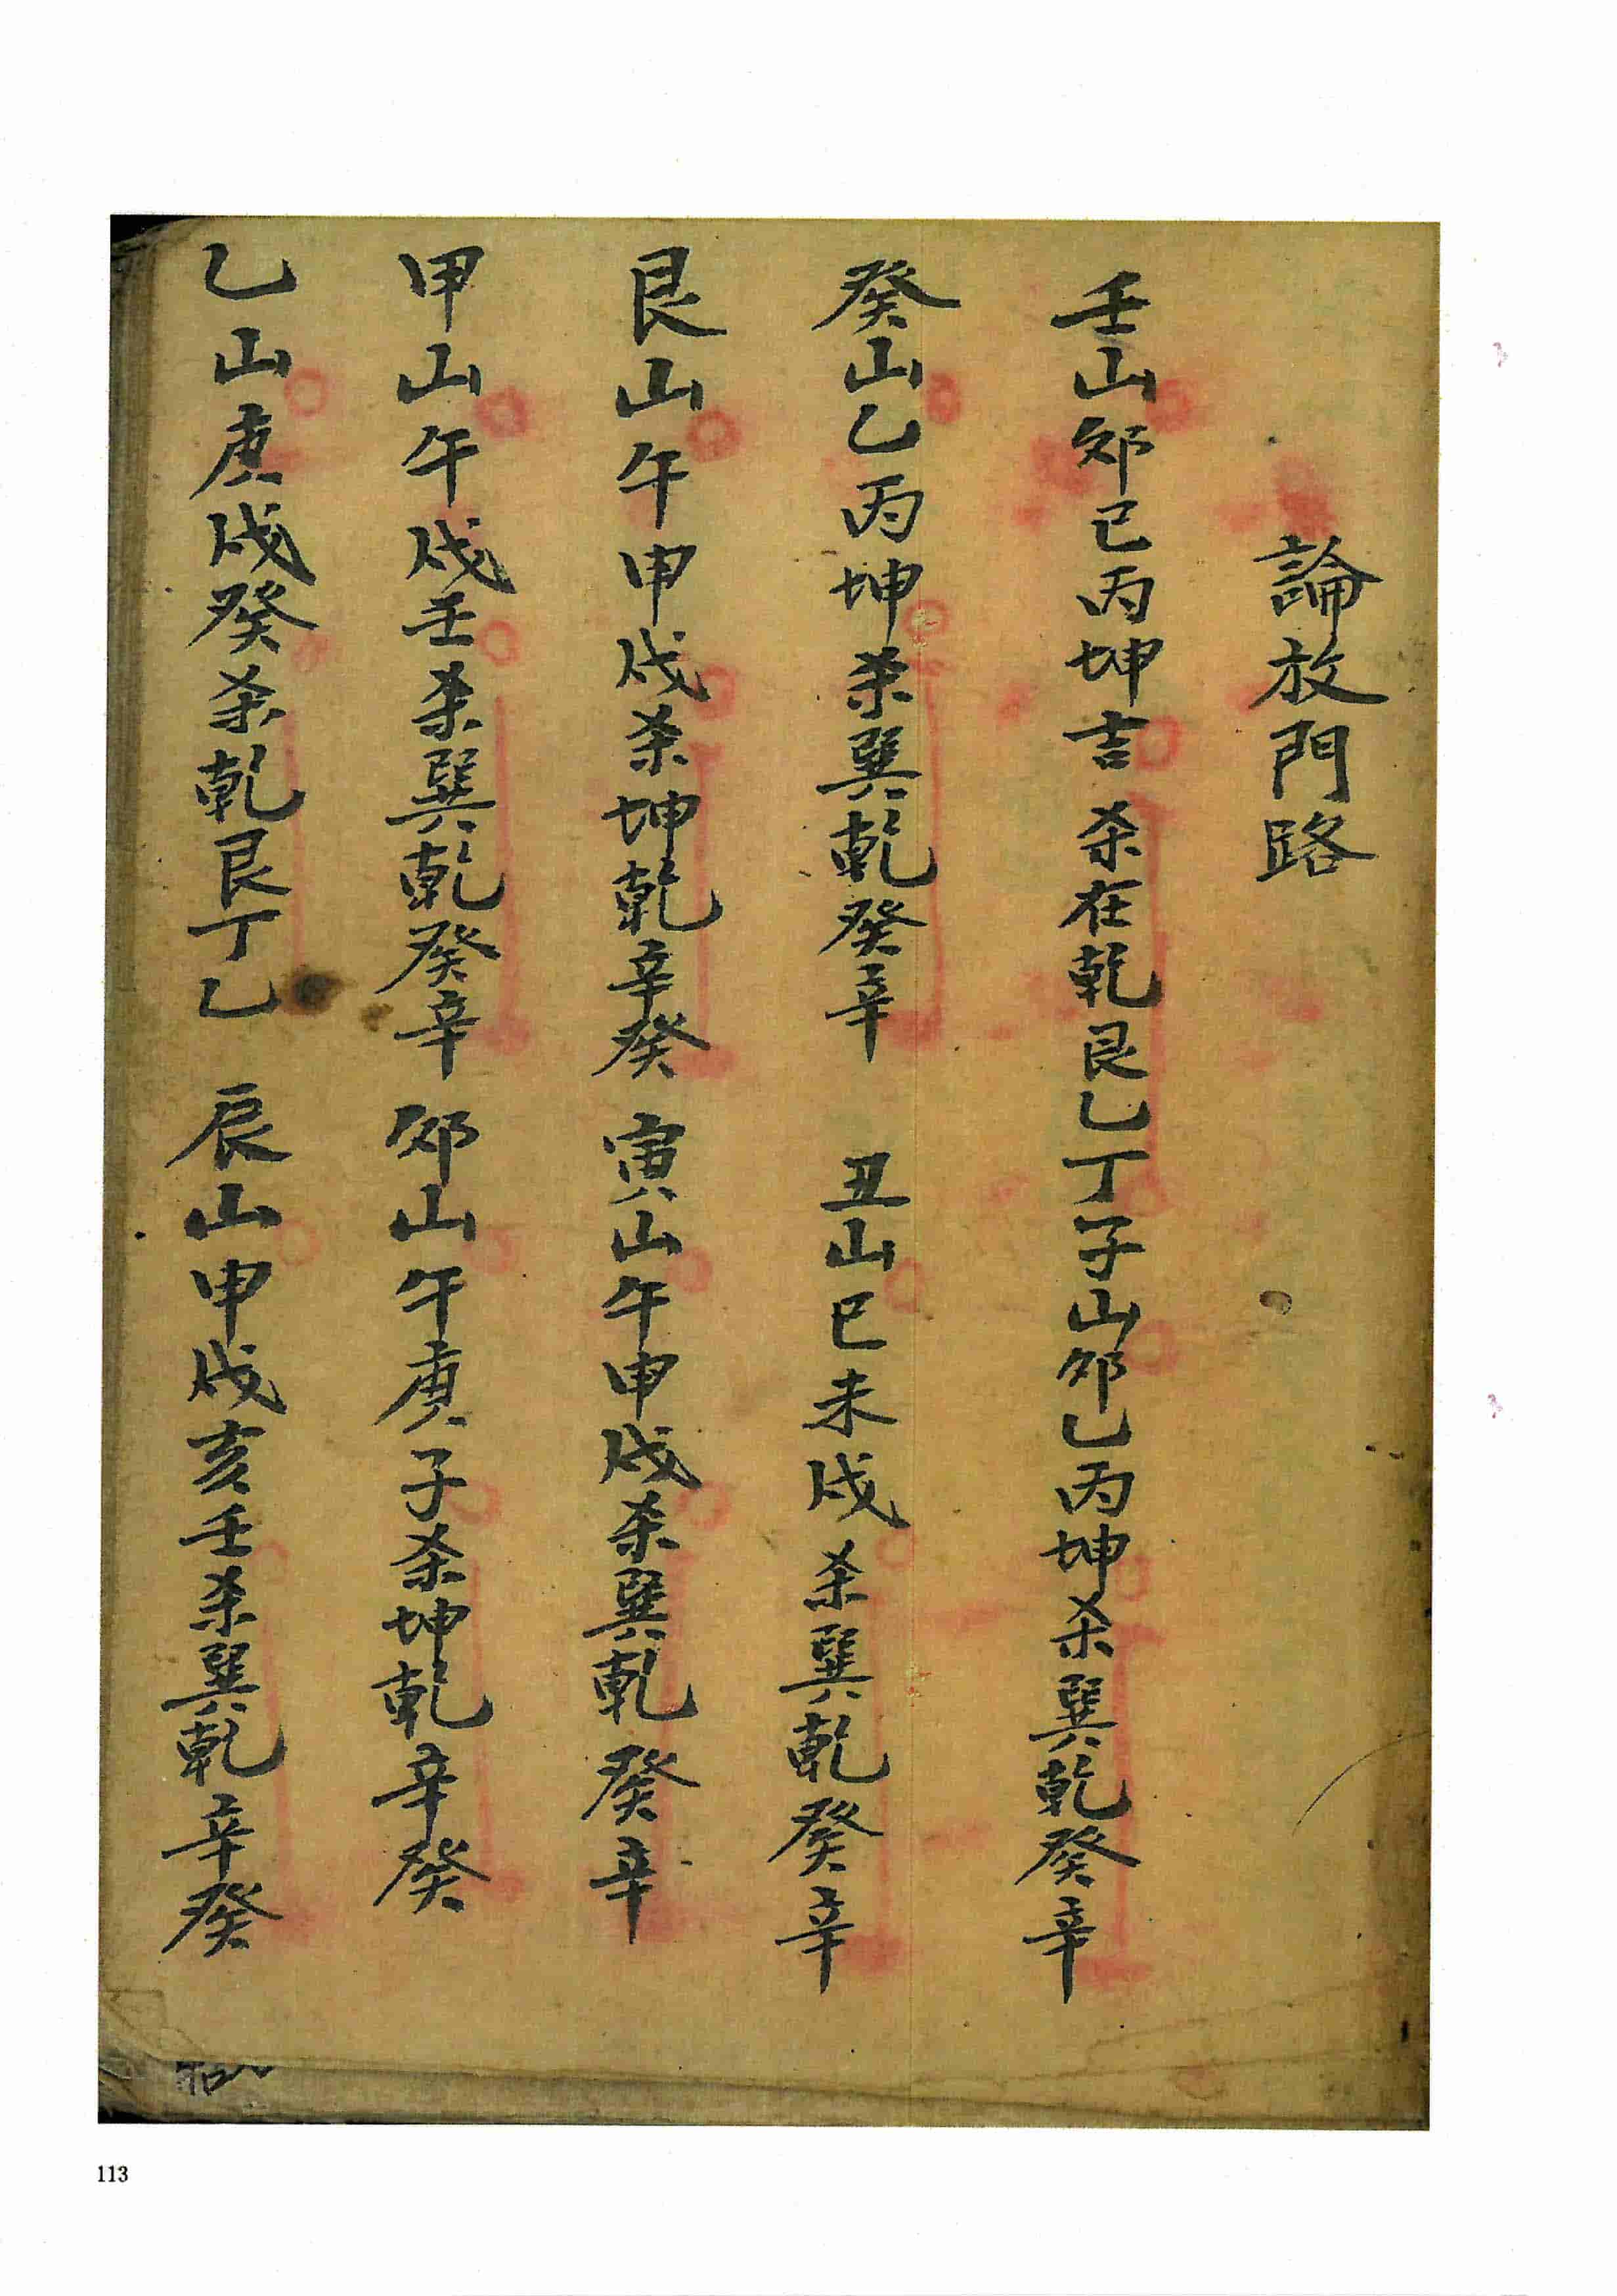 論放門路
壬山夘巳丙坤吉杀在乾艮乙丁子山夘乙丙坤杀巽乾癸辛
癸山乙丙坤杀巽乾癸辛 丑山巳未戌杀巽乾癸辛
艮山午申戌杀坤乾辛癸 寅山午申戌杀巽乾癸辛
甲山午戌壬杀巽乾癸辛 夘山午庚子杀坤乾辛癸
乙山庚戌癸杀乾艮丁乙 辰山申戌亥壬杀巽乾辛癸
113